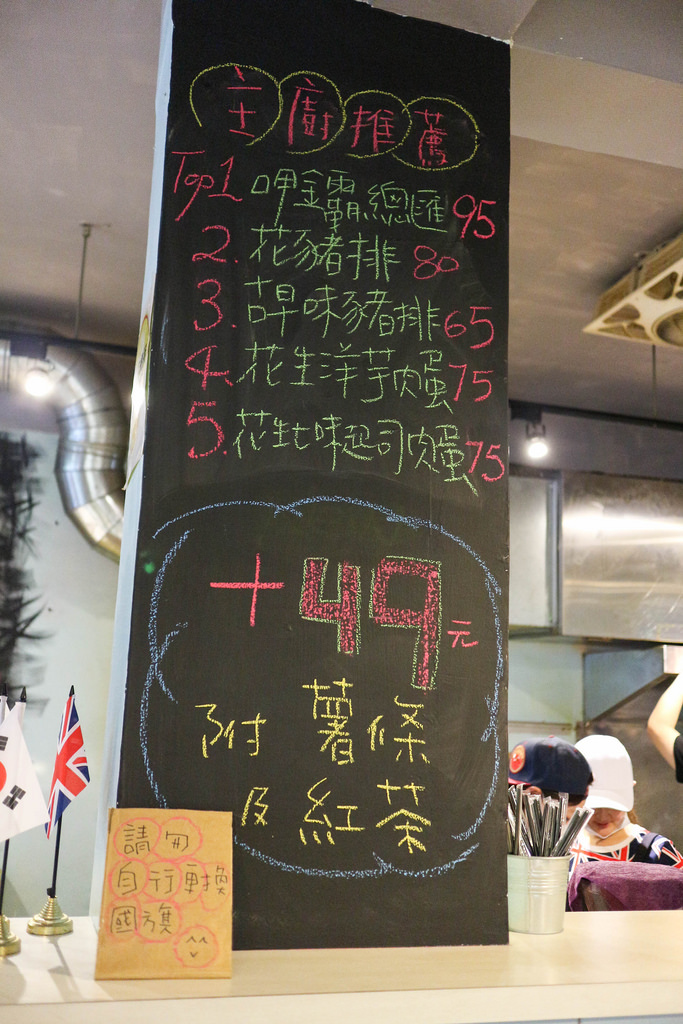 主廚推薦
Top1 呷霸總匯 95
2. 花豬排 80
3. 古早味豬排 65
4. 花生洋芋肉蛋 75
5. 花生七味起司肉蛋 75
+49元
附 薯條
及 紅茶
請勿
自行更換
國旗